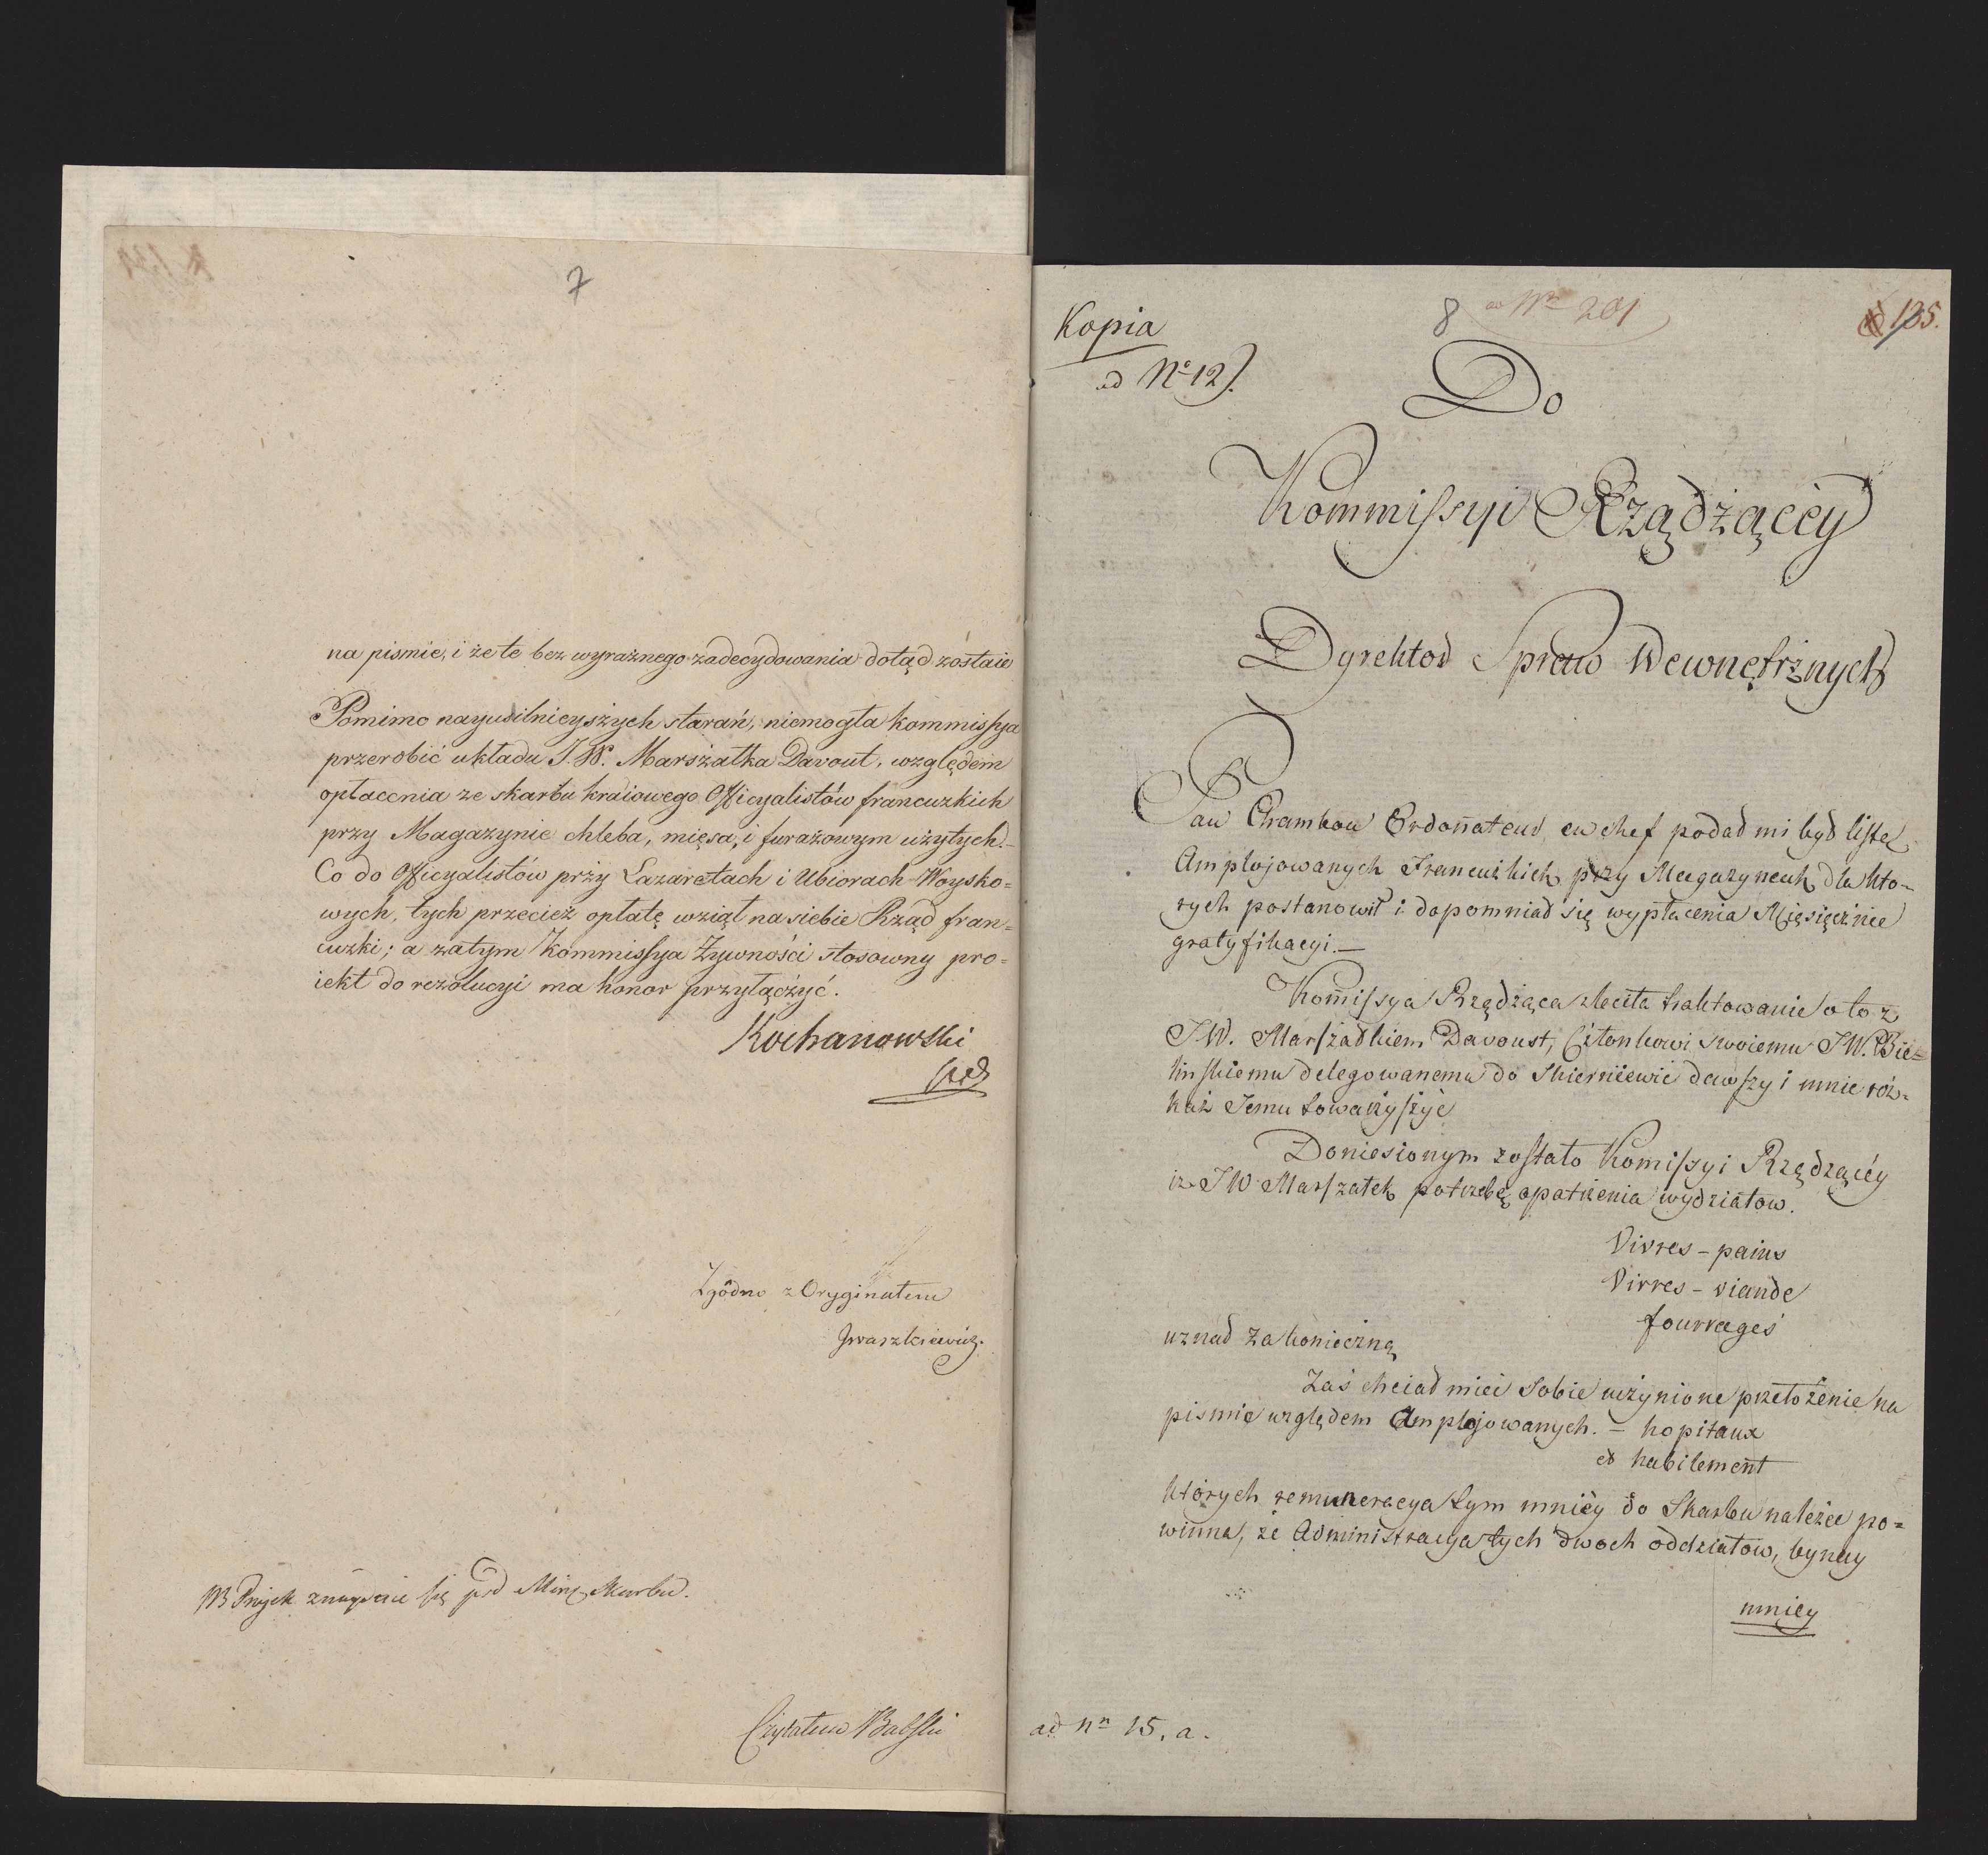 7
na pismie, i że te bez wyraźnego zadecydowania dotąd zostaie
Pomimo nayusilnieyszych starań, niemogła kommissya
przerobić układu J. W. Marszałka Davout, względem
opłacenia ze skarbu kraiowego Officyalistów francuzkich
przy Magazynie chleba, mięsa, i furażowym użytych.
Co do Officyalistów przy Lazaretach i Ubiorach Woysko=
wych, tych przecież opłatę wziął na siebie Rząd fran=
cuzki; a zatym Kommissya Żywności stosowny pro=
iekt do rezolucyi ma honor przyłączyć.
Kochanowski
Zgodno z Oryginałem
Iwaszkiewicz.
NB Projek znayduie się pod Min. Skarbu.
Czytałem Balski
Kopia
ad No 12).
8
ad Nr 201
135.
Do
Kommissyi Rządzącey
Dyrektor Spraw Wewnętrznych
Pan Chambon Ordonnateur en chef podał mi był listę
Amplojowanych Francuzkich przy Magazynach, dla kto=
rych postanowił i dopomniał się wypłacenia Miesięcznie
gratyfikacyi.—
Komissya Rządząca zleciła traktowanie o to z
JW. Marszałkiem Davoust, Członkowi swoiemu JW. Bie=
lińskiemu delegowanemu do Skierniewic dawszy i mnie roz=
kaz Jemu towarzyszyć
Doniesionym zostało Komissyi Rządzącéy
iż JW Marszałek potrzebę opatrzenia wydziałow.
Vivres - pains
Vivres - viande
fourrages
uznał za konieczną
Zaś chciał mieć sobie uczynione przełożenie na
pismie względem Amplojowanych. — hopitaux
et habilement
których remuneracya tym mniéy do Skarbu należeć po=
winna, że Administracya tych dwoch oddziałow, bynay
mniéy
ad nn 15. a.